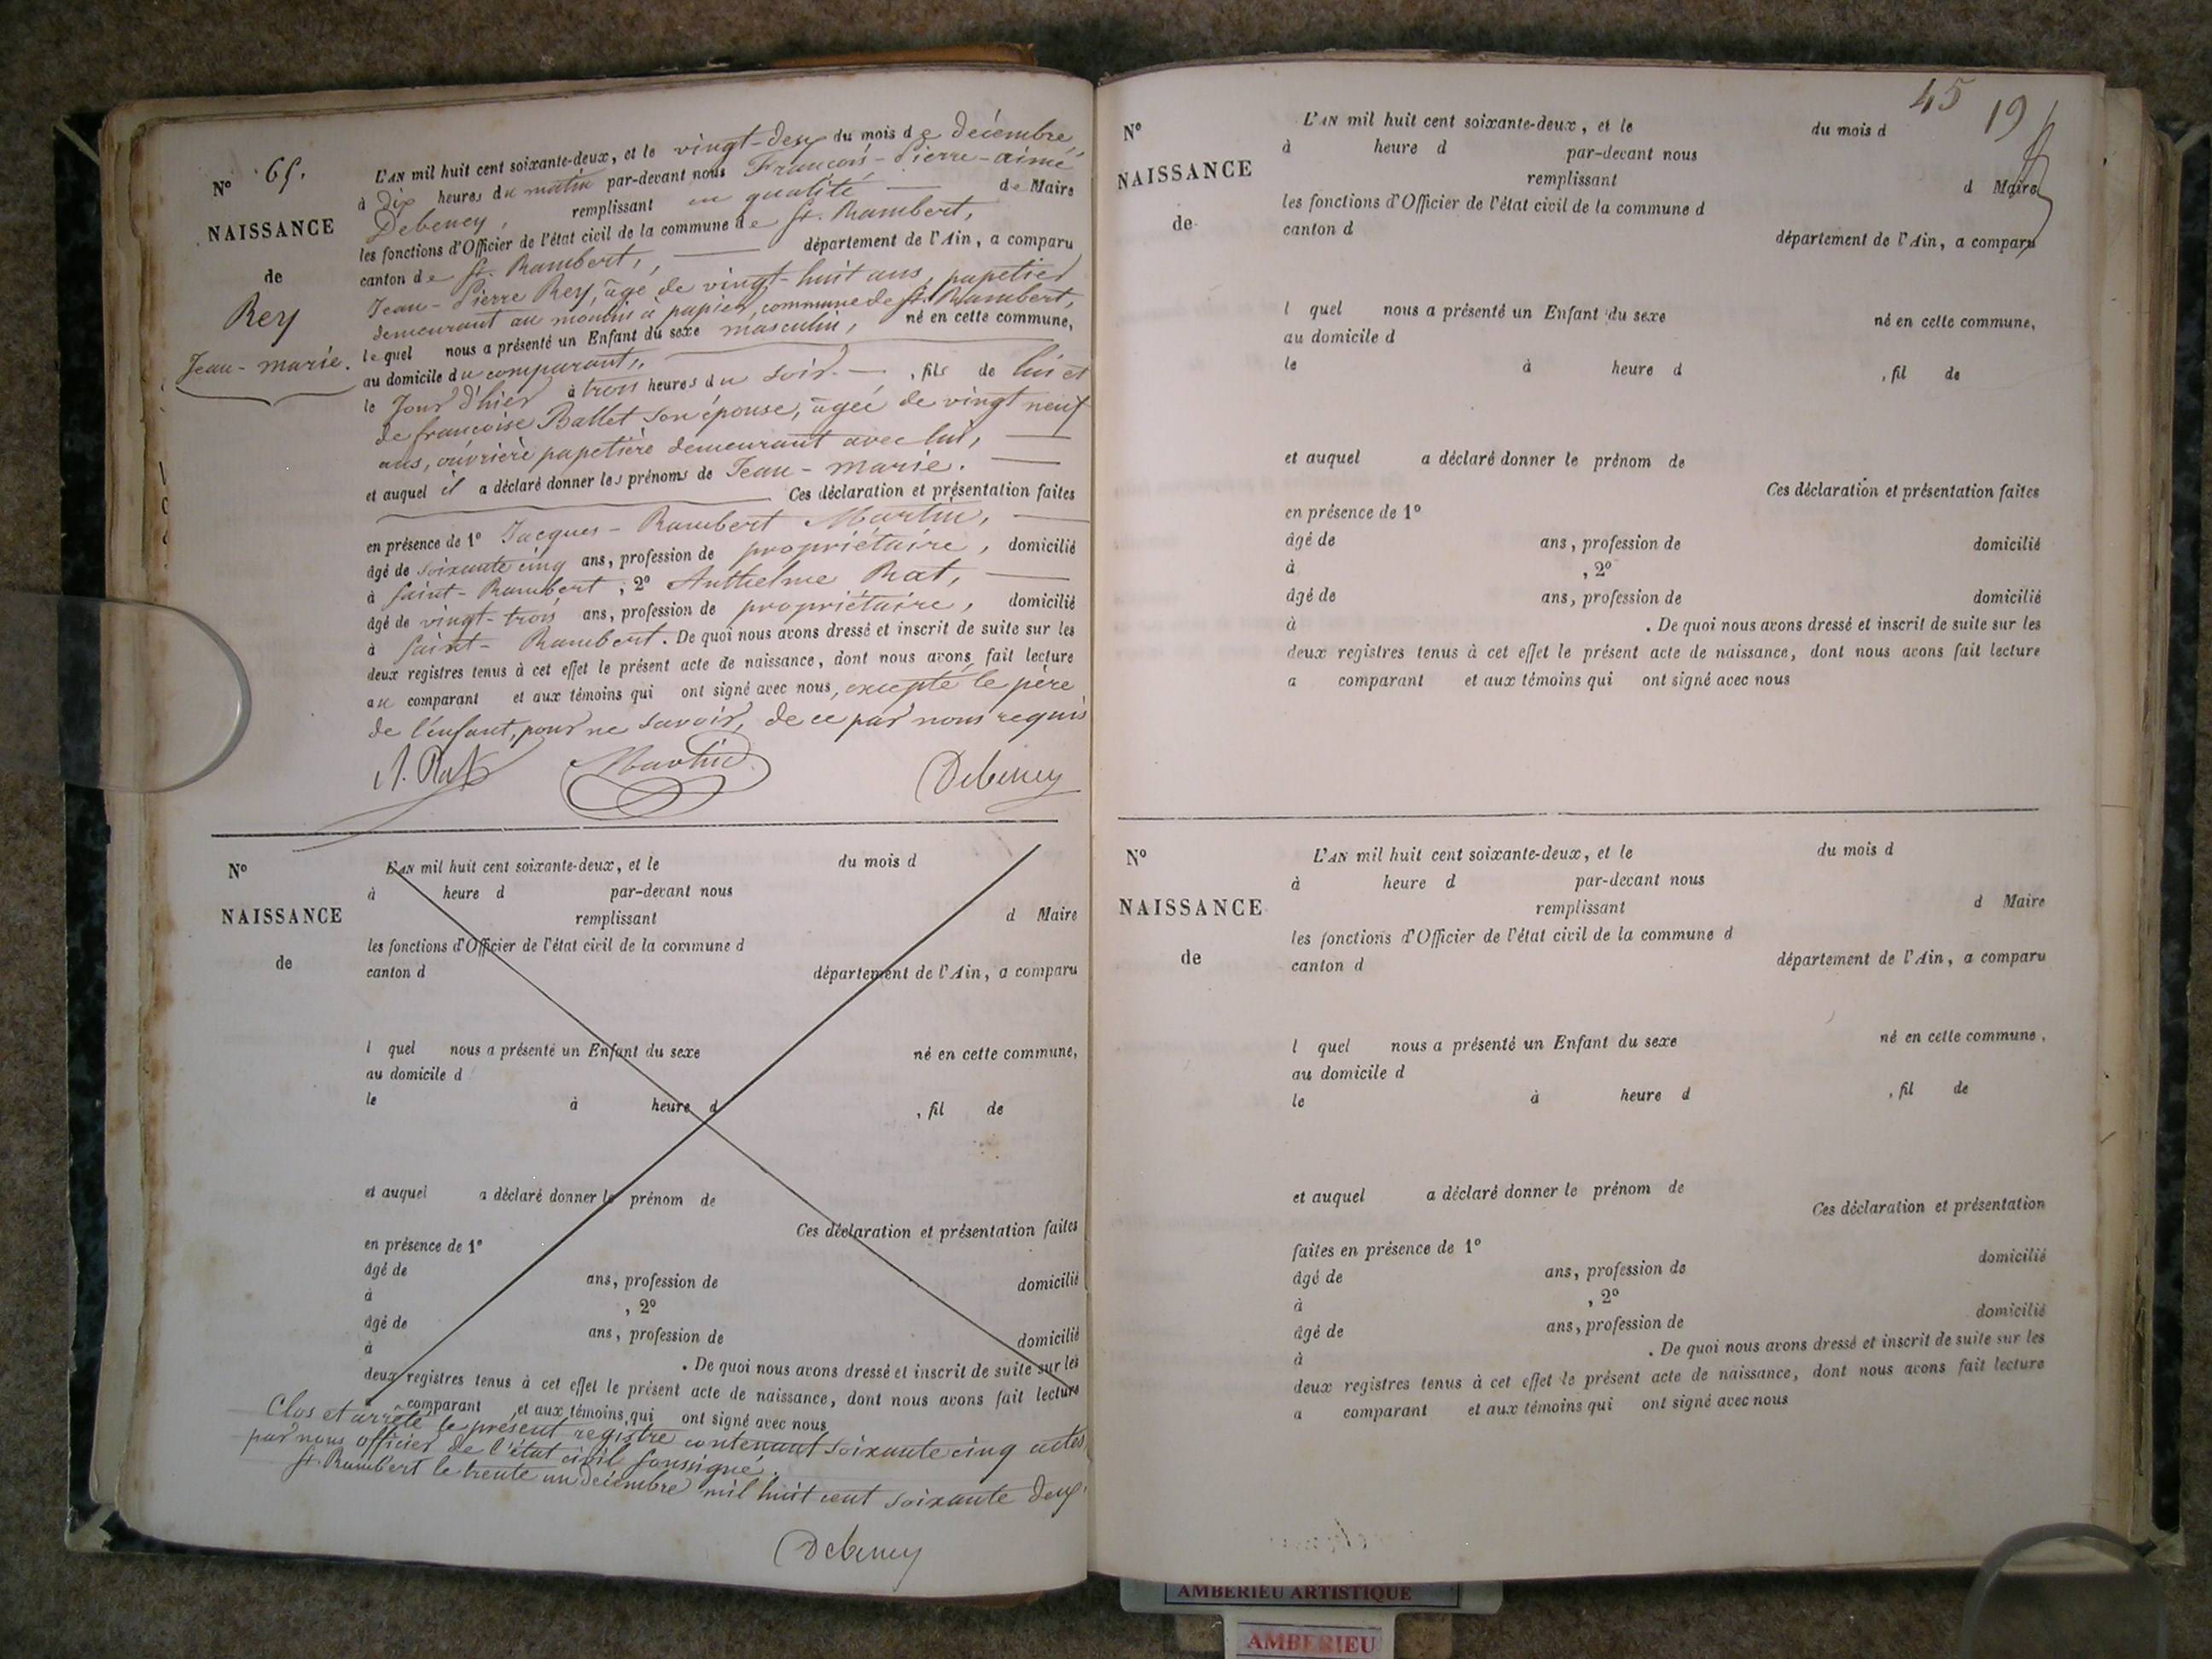 N° 65.
NAISSANCE
de
Rey
Jean-marie.
L'AN mil huit cent soixante-deux, et le vingt-deux du mois de décembre,
à dix heures du matin par-devant nous François-Pierre-aimé
Debeney, remplissant en qualité de Maire
les fonctions d'Officier de l'état civil de la commune de St. Rambert,
canton de St. Rambert, département de l'Ain, a comparu
Jean-Pierre Rey, âgé de vingt-huit ans, papetier
demeurant au moulin à papier, commune de St. Rambert,
lequel nous a présenté un Enfant du sexe masculin, né en cette commune,
au domicile du comparant,
le jour d'hier à trois heures du soir, fils de lui et
de françoise Ballet son épouse, âgée de vingt neuf
ans, ouvrière papetière demeurant avec lui,
et auquel il a déclaré donner les prénoms de Jean-marie.
Ces déclaration et présentation faites
en présence de 1° Jacques-Rambert Martin,
âgé de soixante cinq ans, profession de propriétaire, domicilié
à Saint-Rambert, 2° Anthelme Rat,
âgé de vingt-trois ans, profession de propriétaire, domicilié
à Saint-Rambert. De quoi nous avons dressé et inscrit de suite sur les
deux registres tenus à cet effet le présent acte de naissance, dont nous avons fait lecture
au comparant et aux témoins qui ont signé avec nous, excepté le père
de l'enfant, pour ne savoir, de ce par nous requis
A. Rat Martin Debeney
N°
NAISSANCE
de
L'AN mil huit cent soixante-deux, et le du mois d
à heure d par-devant nous
remplissant d Maire
les fonctions d'Officier de l'état civil de la commune d
canton d département de l'Ain, a comparu
l quel nous a présenté un Enfant du sexe né en cette commune,
au domicile d
le à heure d , fil de
et auquel a déclaré donner le prénom de
Ces déclaration et présentation faites
en présence de 1°
âgé de ans, profession de domicilié
à , 2°
âgé de ans, profession de domicilié
à . De quoi nous avons dressé et inscrit de suite sur les
deux registres tenus à cet effet le présent acte de naissance, dont nous avons fait lecture
a comparant et aux témoins qui ont signé avec nous
Clos et arrêté le présent registre contenant soixante cinq actes
par nous officier de l'état civil soussigné.
St. Rambert le trente un décembre mil huit cent soixante deux
Debeney
45 19
N°
NAISSANCE
de
L'AN mil huit cent soixante-deux, et le du mois d
à heure d par-devant nous
remplissant d Maire
les fonctions d'Officier de l'état civil de la commune d
canton d département de l'Ain, a comparu
l quel nous a présenté un Enfant du sexe né en cette commune,
au domicile d
le à heure d , fil de
et auquel a déclaré donner le prénom de
Ces déclaration et présentation faites
en présence de 1°
âgé de ans, profession de domicilié
à , 2°
âgé de ans, profession de domicilié
à . De quoi nous avons dressé et inscrit de suite sur les
deux registres tenus à cet effet le présent acte de naissance, dont nous avons fait lecture
a comparant et aux témoins qui ont signé avec nous
N°
NAISSANCE
de
L'AN mil huit cent soixante-deux, et le du mois d
à heure d par-devant nous
remplissant d Maire
les fonctions d'Officier de l'état civil de la commune d
canton d département de l'Ain, a comparu
l quel nous a présenté un Enfant du sexe né en cette commune,
au domicile d
le à heure d , fil de
et auquel a déclaré donner le prénom de
Ces déclaration et présentation
faites en présence de 1° domicilié
âgé de ans, profession de
à , 2° domicilié
âgé de ans, profession de
à . De quoi nous avons dressé et inscrit de suite sur les
deux registres tenus à cet effet le présent acte de naissance, dont nous avons fait lecture
a comparant et aux témoins qui ont signé avec nous
AMBERIEU ARTISTIQUE
AMBERIEU